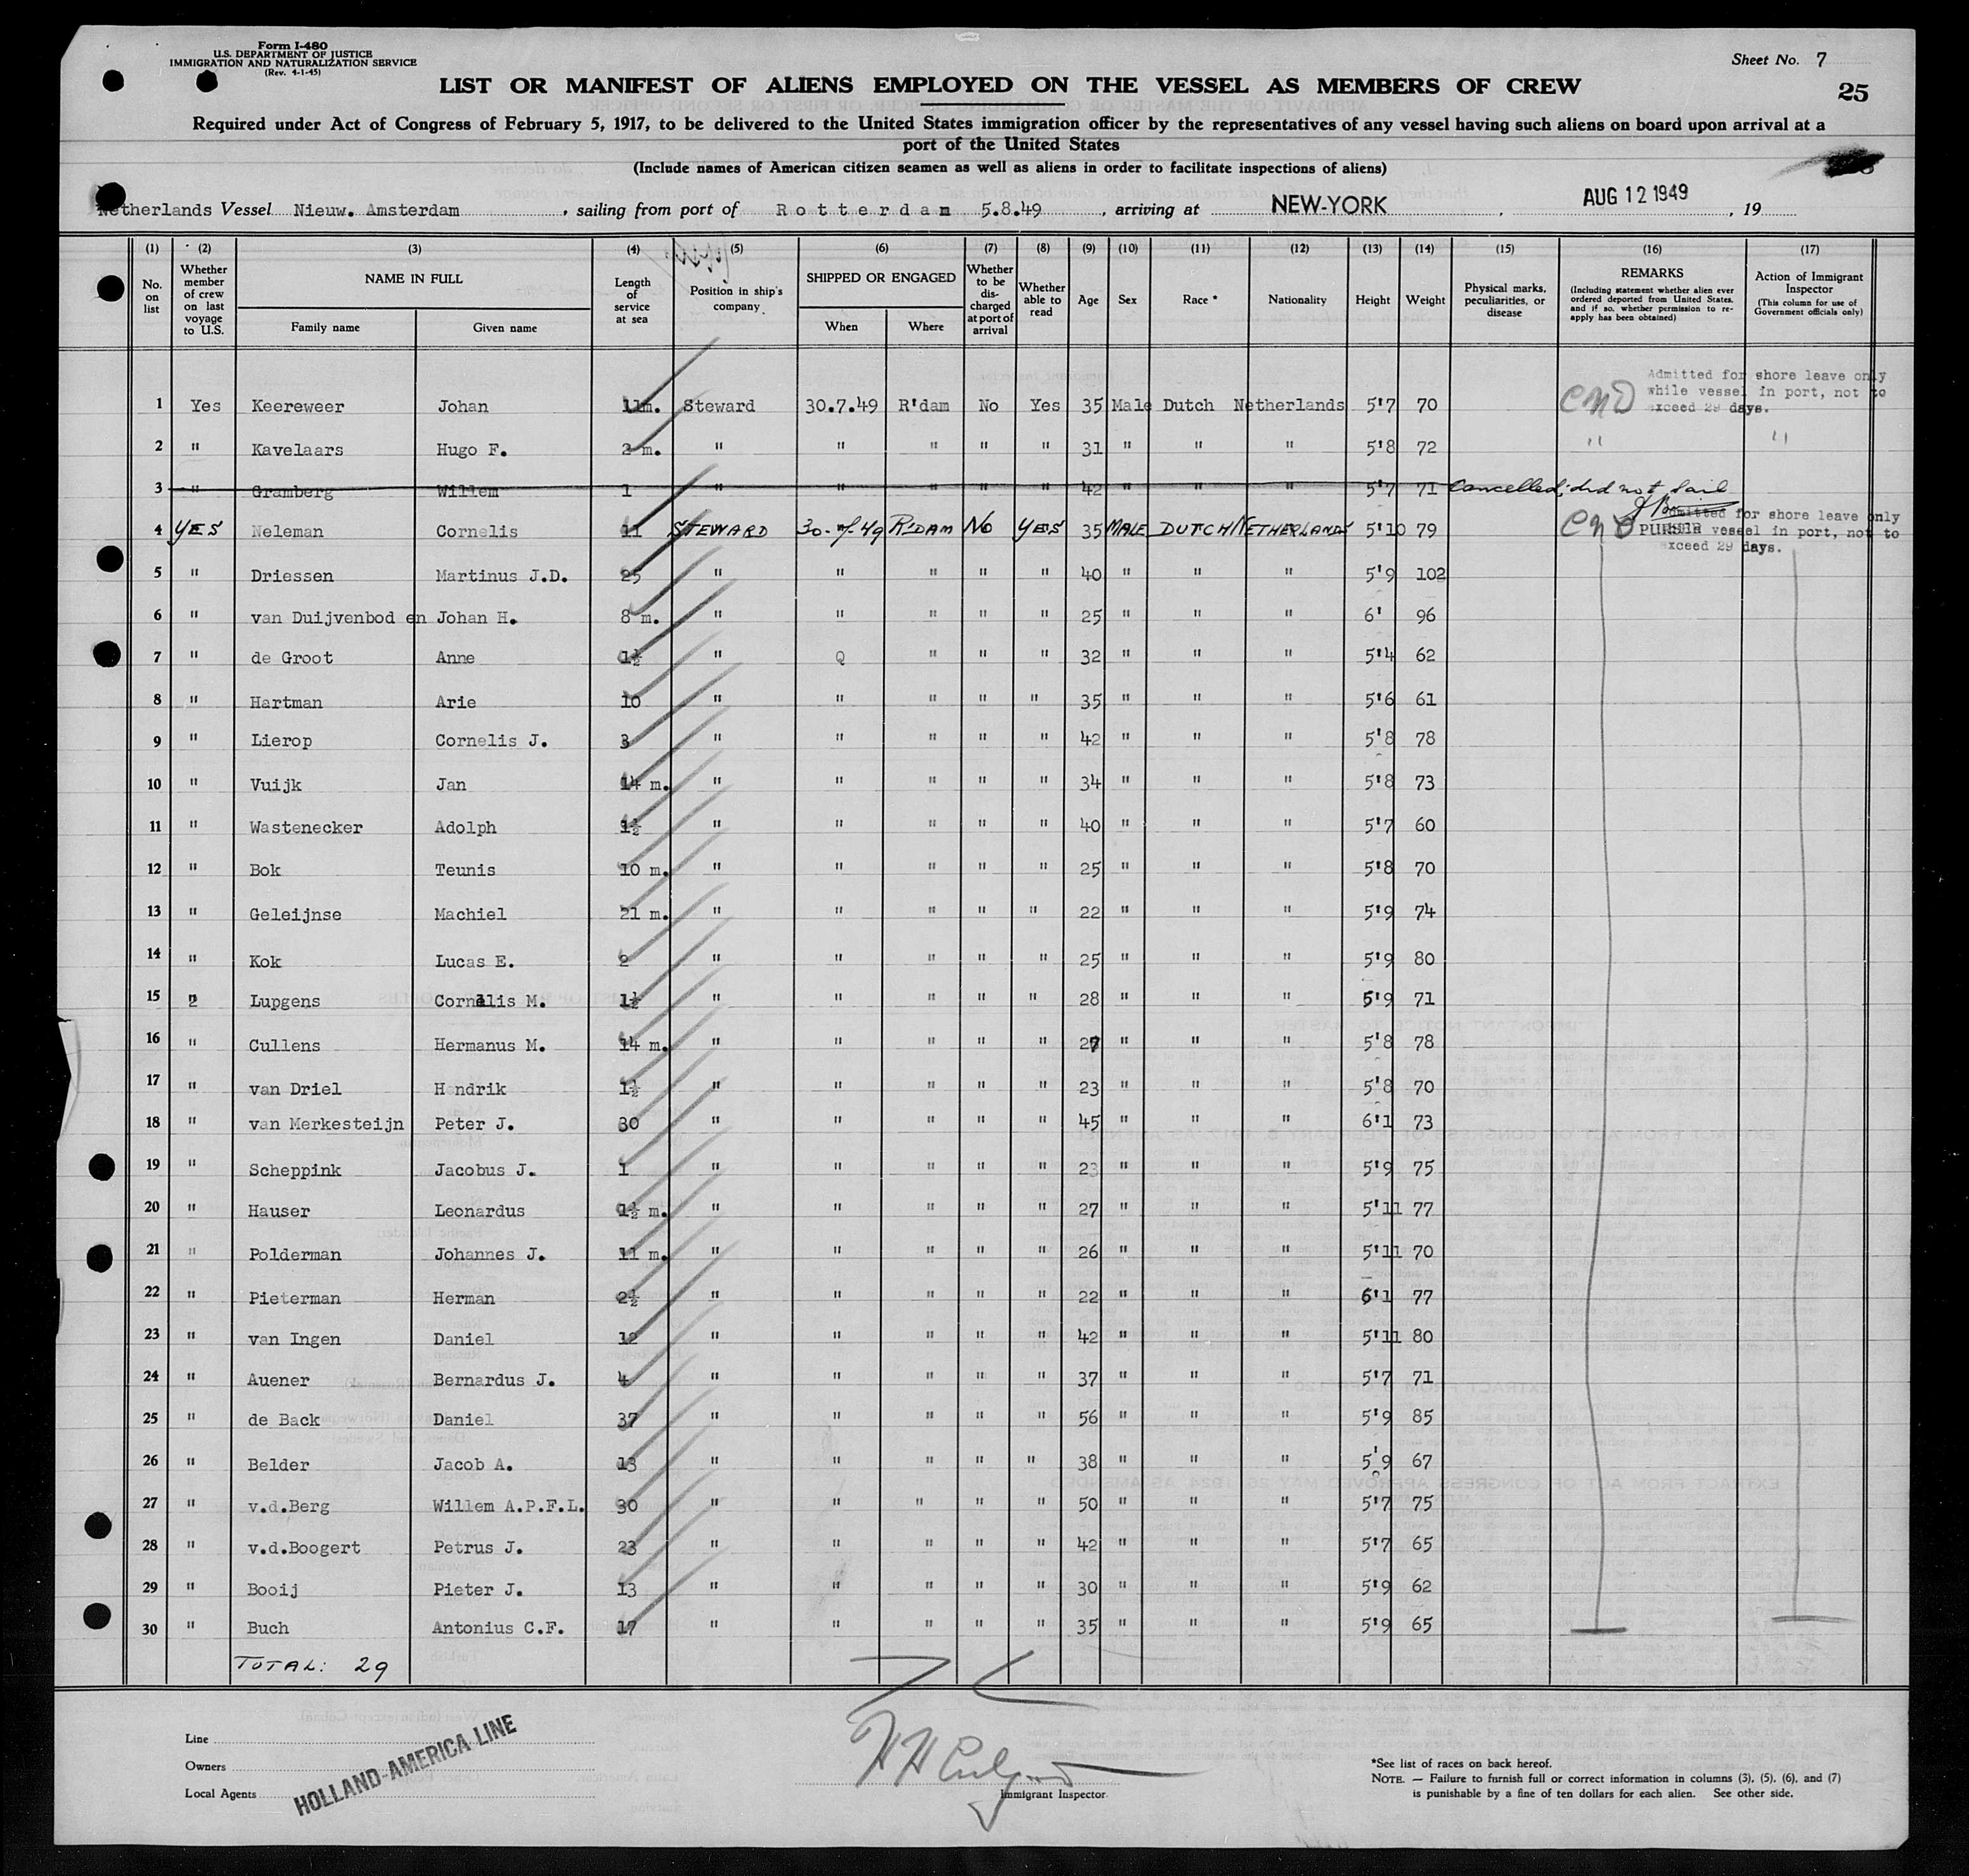 Form I-480
U.S. DEPARTMENT OF JUSTICE
IMMIGRATION AND NATURALIZATION SERVICE
(Rev. 4-1-45)
Sheet No. 7
LIST OR MANIFEST OF ALIENS EMPLOYED ON THE VESSEL AS MEMBERS OF CREW
25
Required under Act of Congress of February 5, 1917, to be delivered to the United States immigration officer by the representatives of any vessel having such aliens on board upon arrival at a
port of the United States
(Include names of American citizen seamen as well as aliens in order to facilitate inspections of aliens)
Netherlands Vessel Nieuw. Amsterdam, sailing from port of Rotterdam 5.8.49, arriving at NEW-YORK, AUG 12 1949, 19
(1) (2) (3) (4) (5) (6) (7) (8) (9) (10) (11) (12) (13) (14) (15) (16) (17)
No. on list
Whether member of crew on last voyage to U.S.
NAME IN FULL
Family name
Given name
Length of service at sea
Position in ship's company
SHIPPED OR ENGAGED
When
Where
Whether to be discharged at port of arrival
Whether able to read
Age
Sex
Race *
Nationality
Height
Weight
Physical marks, peculiarities, or disease
REMARKS
(Including statement whether alien ever ordered deported from United States, and if so, whether permission to re-apply has been obtained)
Action of Immigrant Inspector
(This column for use of Government officials only)
1 Yes Keereweer Johan 11m. Steward 30.7.49 R'dam No Yes 35 Male Dutch Netherlands 5'7 70 Admitted for shore leave only while vessel in port, not to exceed 29 days.
2 " Kavelaars Hugo F. 2 m. " " " " " 31 " " " 5'8 72 " "
3 " Gramberg Willem 1 " " " " " 42 " " " 5'7 71 Cancelled; did not sail
4 YES Neleman Cornelis 11 STEWARD 30-7-49 R'DAM NO YES 35 MALE DUTCH NETHERLANDS 5'10 79 PURSER Admitted for shore leave only while vessel in port, not to exceed 29 days.
5 " Driessen Martinus J.D. 25 " " " " " 40 " " " 5'9 102
6 " van Duijvenbod en Johan H. 8 m. " " " " " 25 " " " 6' 96
7 " de Groot Anne 1½ " Q " " " 32 " " " 5'4 62
8 " Hartman Arie 10 " " " " " 35 " " " 5'6 61
9 " Lierop Cornelis J. 3 " " " " " 42 " " " 5'8 78
10 " Vuijk Jan 14 m. " " " " " 34 " " " 5'8 73
11 " Wastenecker Adolph 1½ " " " " " 40 " " " 5'7 60
12 " Bok Teunis 10 m. " " " " " 25 " " " 5'8 70
13 " Geleijnse Machiel 21 m. " " " " " 22 " " " 5'9 74
14 " Kok Lucas E. 2 " " " " " 25 " " " 5'9 80
15 " Lupgens Cornelis M. 1½ " " " " " 28 " " " 5'9 71
16 " Cullens Hermanus M. 14 m. " " " " " 27 " " " 5'8 78
17 " van Driel H ndrik 1½ " " " " " 23 " " " 5'8 70
18 " van Merkesteijn Peter J. 30 " " " " " 45 " " " 6'1 73
19 " Scheppink Jacobus J. 1 " " " " " 23 " " " 5'9 75
20 " Hauser Leonardus 1½ m. " " " " " 27 " " " 5'11 77
21 " Polderman Johannes J. 11 m. " " " " " 26 " " " 5'11 70
22 " Pieterman Herman 2½ " " " " " 22 " " " 6'1 77
23 " van Ingen Daniel 12 " " " " " 42 " " " 5'11 80
24 " Auener Bernardus J. 4 " " " " " 37 " " " 5'7 71
25 " de Back Daniel 37 " " " " " 56 " " " 5'9 85
26 " Belder Jacob A. 13 " " " " " 38 " " " 5'9 67
27 " v.d.Berg Willem A.P.F.L. 30 " " " " " 50 " " " 5'7 75
28 " v.d.Boogert Petrus J. 23 " " " " " 42 " " " 5'7 65
29 " Booij Pieter J. 13 " " " " " 30 " " " 5'9 62
30 " Buch Antonius C.F. 17 " " " " " 35 " " " 5'9 65
TOTAL: 29
Line
Owners
Local Agents
HOLLAND-AMERICA LINE
Immigrant Inspector
*See list of races on back hereof.
NOTE. — Failure to furnish full or correct information in columns (3), (5), (6), and (7)
is punishable by a fine of ten dollars for each alien. See other side.